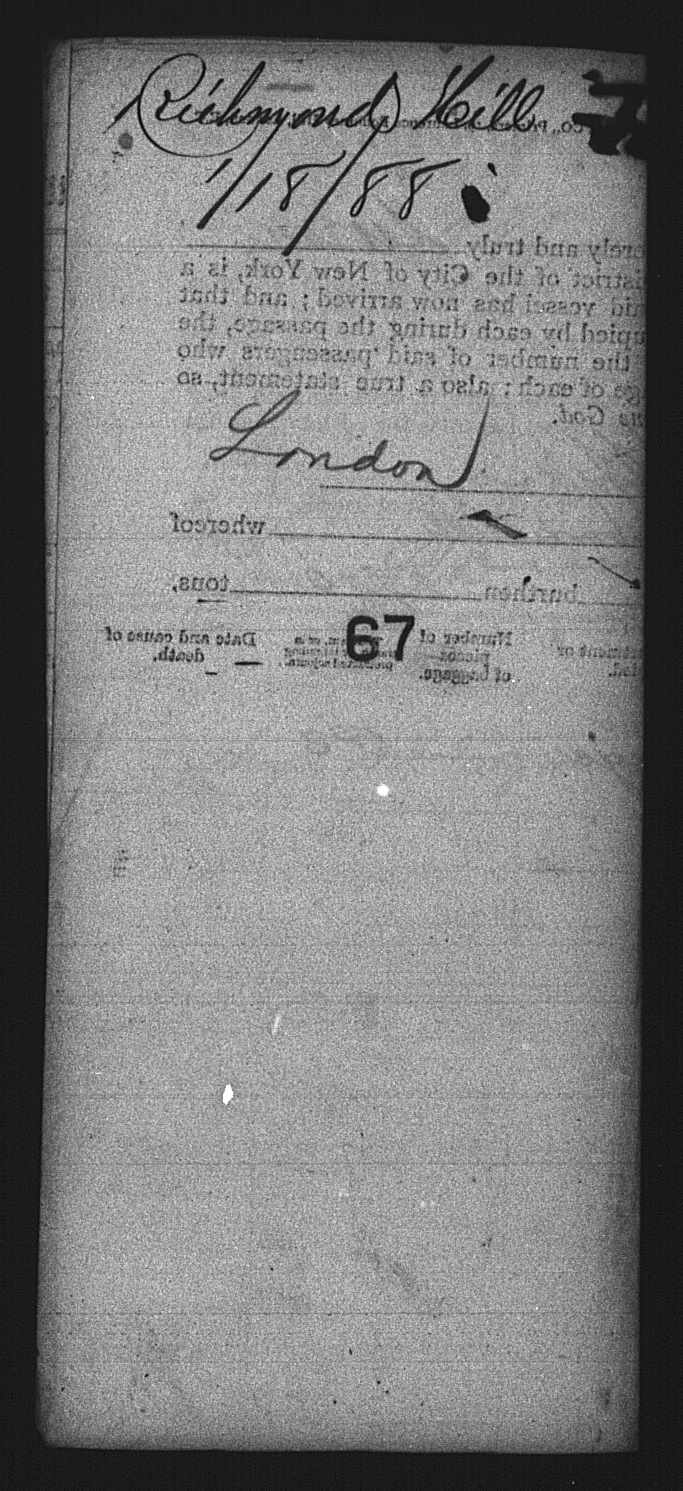 Richmond Hill
1/18/88
London
67
CO.,
erely and truly
istrict of the City of New York, is a
id vessel has now arrived; and that
upied by each during the passage, the
the number of said passengers who
ge of each; also a true statement, so
God.
whereof
burthen tons,
Number of pieces of baggage.
Date and cause of death.